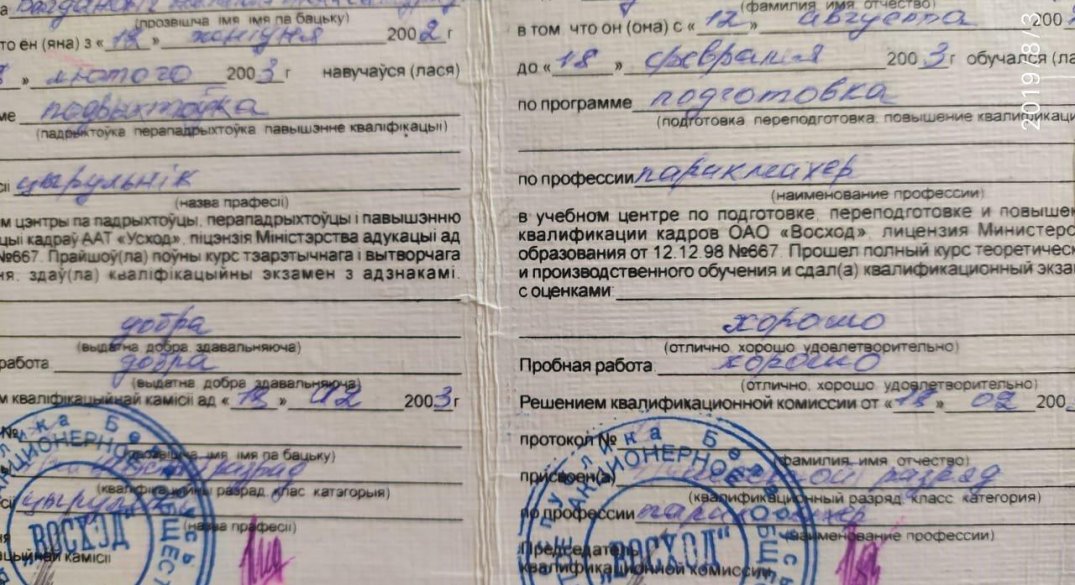 (прозвішча імя імя па бацьку)
то ён (яна) з « 12 » жніўня 2002 г
» лютого 2003 г навучаўся (лася)
ме падрыхтоўка
(падрыхтоўка перападрыхтоўка павышэнне кваліфікацыі)
сіі цырульнік
(назва прафесіі)
м цэнтры па падрыхтоўцы, перападрыхтоўцы і павышэнню
цыі кадраў ААТ «Усход», ліцэнзія Міністэрства адукацыі ад
№667. Прайшоў(ла) поўны курс тэарэтычнага і вытворчага
ня, здаў(ла) кваліфікацыйны экзамен з адзнакамі.
добра
(выдатна добра здавальняюча)
работа добра
(выдатна добра здавальняюча)
м кваліфікацыйнай камісіі ад « 18 » 02 2003 г
№
(прозвішча імя імя па бацьку)
разряд
(кваліфікацыйны разрад клас катэгорыя)
сіі
(назва прафесіі)
цыйнай камісіі
"ВОСХОД"
(фамилия, имя, отчество)
в том что он (она) с « 12 » августа 200
до « 18 » февраля 2003 г обучался (ла
по программе подготовка
(подготовка переподготовка повышение квалификаци
по профессии парикмахер
(наименование профессии)
в учебном центре по подготовке, переподготовке и повышен
квалификации кадров ОАО «Восход», лицензия Министерс
образования от 12.12.98 №667. Прошел полный курс теоретическ
и производственного обучения и сдал(а) квалификационный экза
с оценками
хорошо
(отлично, хорошо удовлетворительно)
Пробная работа хорошо
(отлично, хорошо, удовлетворительно)
Решением квалификационной комиссии от « 18 » 02 200
протокол №
(фамилия, имя, отчество)
присвоен(а) разряд
(квалификационный разряд, класс, категория)
по профессии парикмахер
(наименование профессии)
Председатель
квалификационной комиссии
"ВОСХОД"
2019/8/3